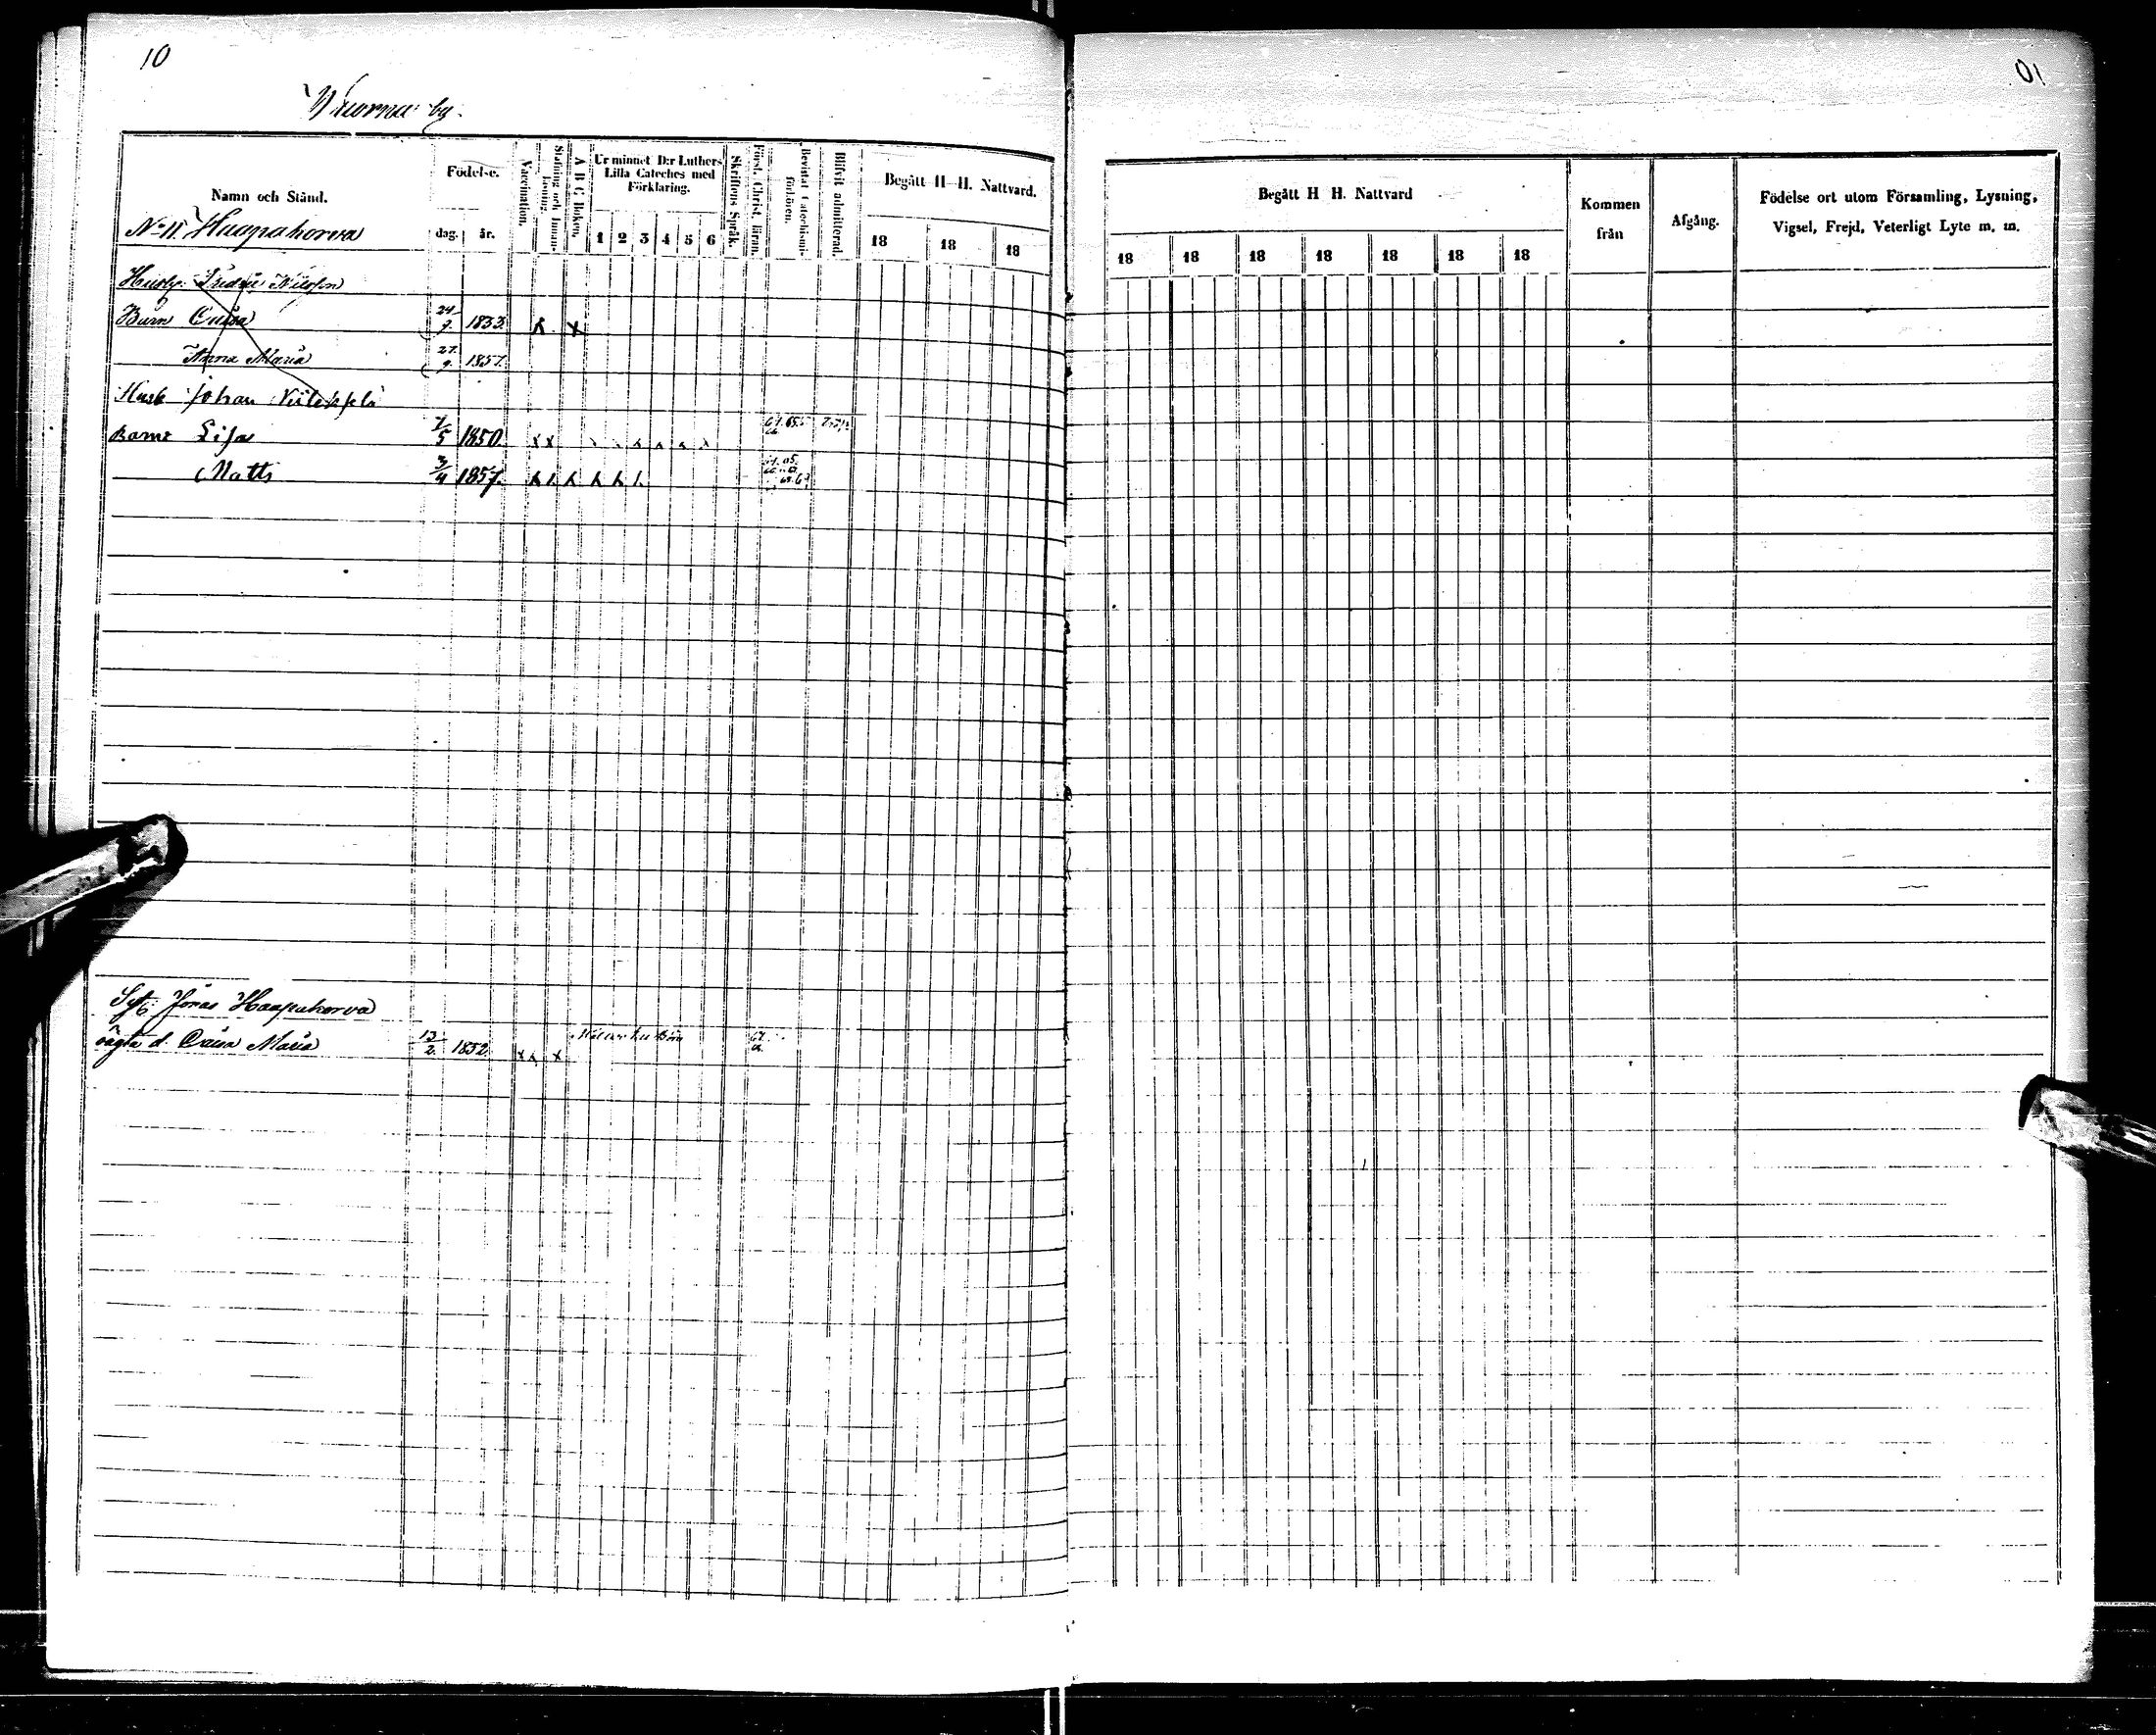 10
by.
Namn och Stånd.
Födelse.
dag. år.
Vaccination.
Stafning och Innan-läsning.
A B C Boken.
Ur minnet D:r Luthers Lilla Cateches med Förklaring.
1 2 3 4 5 6
Skriftens Språk.
Först. Christ. läran.
Bevistat Catechismi-förhören.
Blifvit admitterad.
Begått H H. Nattvard.
18 18 18
No 11. Haapakorva
Barn Caisa 24/9 1853. x x
Anna Maria 27/9 1857.
Husb Johan
Barns Lisa 1/5 1850. x x
Matts 3/4 1857.
Jonas Haapakorva
d. Caisa Maria 13/2 1852. x x x
10
Begått H H. Nattvard
18 18 18 18 18 18 18
Kommen från
Afgång.
Födelse ort utom Församling, Lysning,
Vigsel, Frejd, Veterligt Lyte m. m.